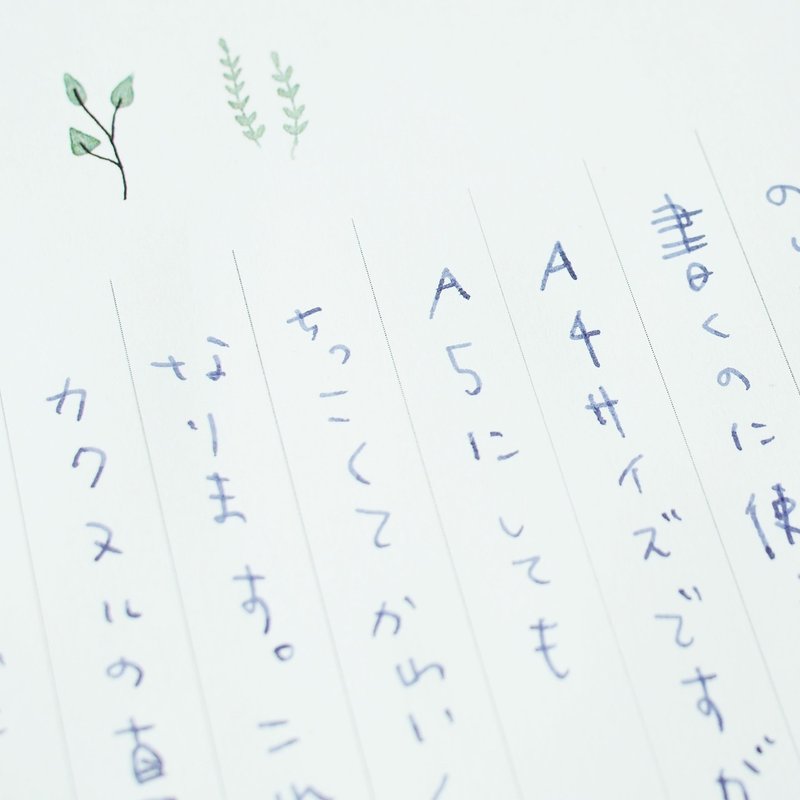 の
書くのに使
A4サイズですが
A5にしても
ちっこくてかわい
なります。これ
カクヌルの直